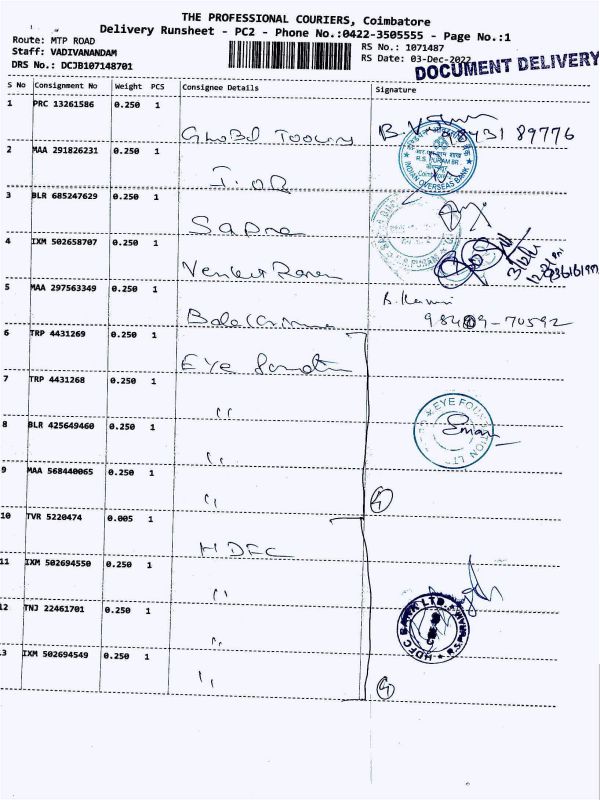 THE PROFESSIONAL COURIERS, Coimbatore
Delivery Runsheet - PC2 - Phone No.:0422-3505555 - Page No.:1
Route: MTP ROAD
Staff: VADIVANANDAM
DRS No.: DCJB107148701
RS No.: 1071487
RS Date: 03-Dec-2022
DOCUMENT DELIVERY
S No Consignment No Weight PCS Consignee Details Signature
1 PRC 13261586 0.250 1
89776
2 MAA 291826231 0.250 1
I.O.B
INDIAN OVERSEAS BANK
R.S. PURAM BR
3 BLR 685247629 0.250 1
Sapna
4 IXM 502658707 0.250 1
5 MAA 297563349 0.250 1
70592
6 TRP 4431269 0.250 1
Eye
7 TRP 4431268 0.250 1
"
EYE FOUNDATION LTD
8 BLR 425649460 0.250 1
"
9 MAA 568440065 0.250 1
"
4
10 TVR 5220474 0.005 1
HDFC
11 IXM 502694550 0.250 1
"
12 TNJ 22461701 0.250 1
"
HDFC BANK LTD
13 IXM 502694549 0.250 1
"
4